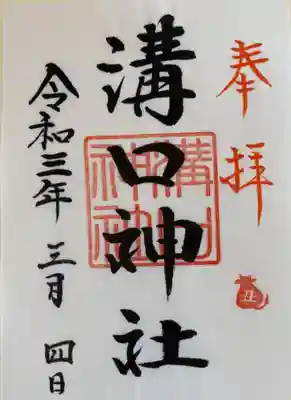 奉拝
丑
溝口神社
溝口神社
令和三年 三月 四日